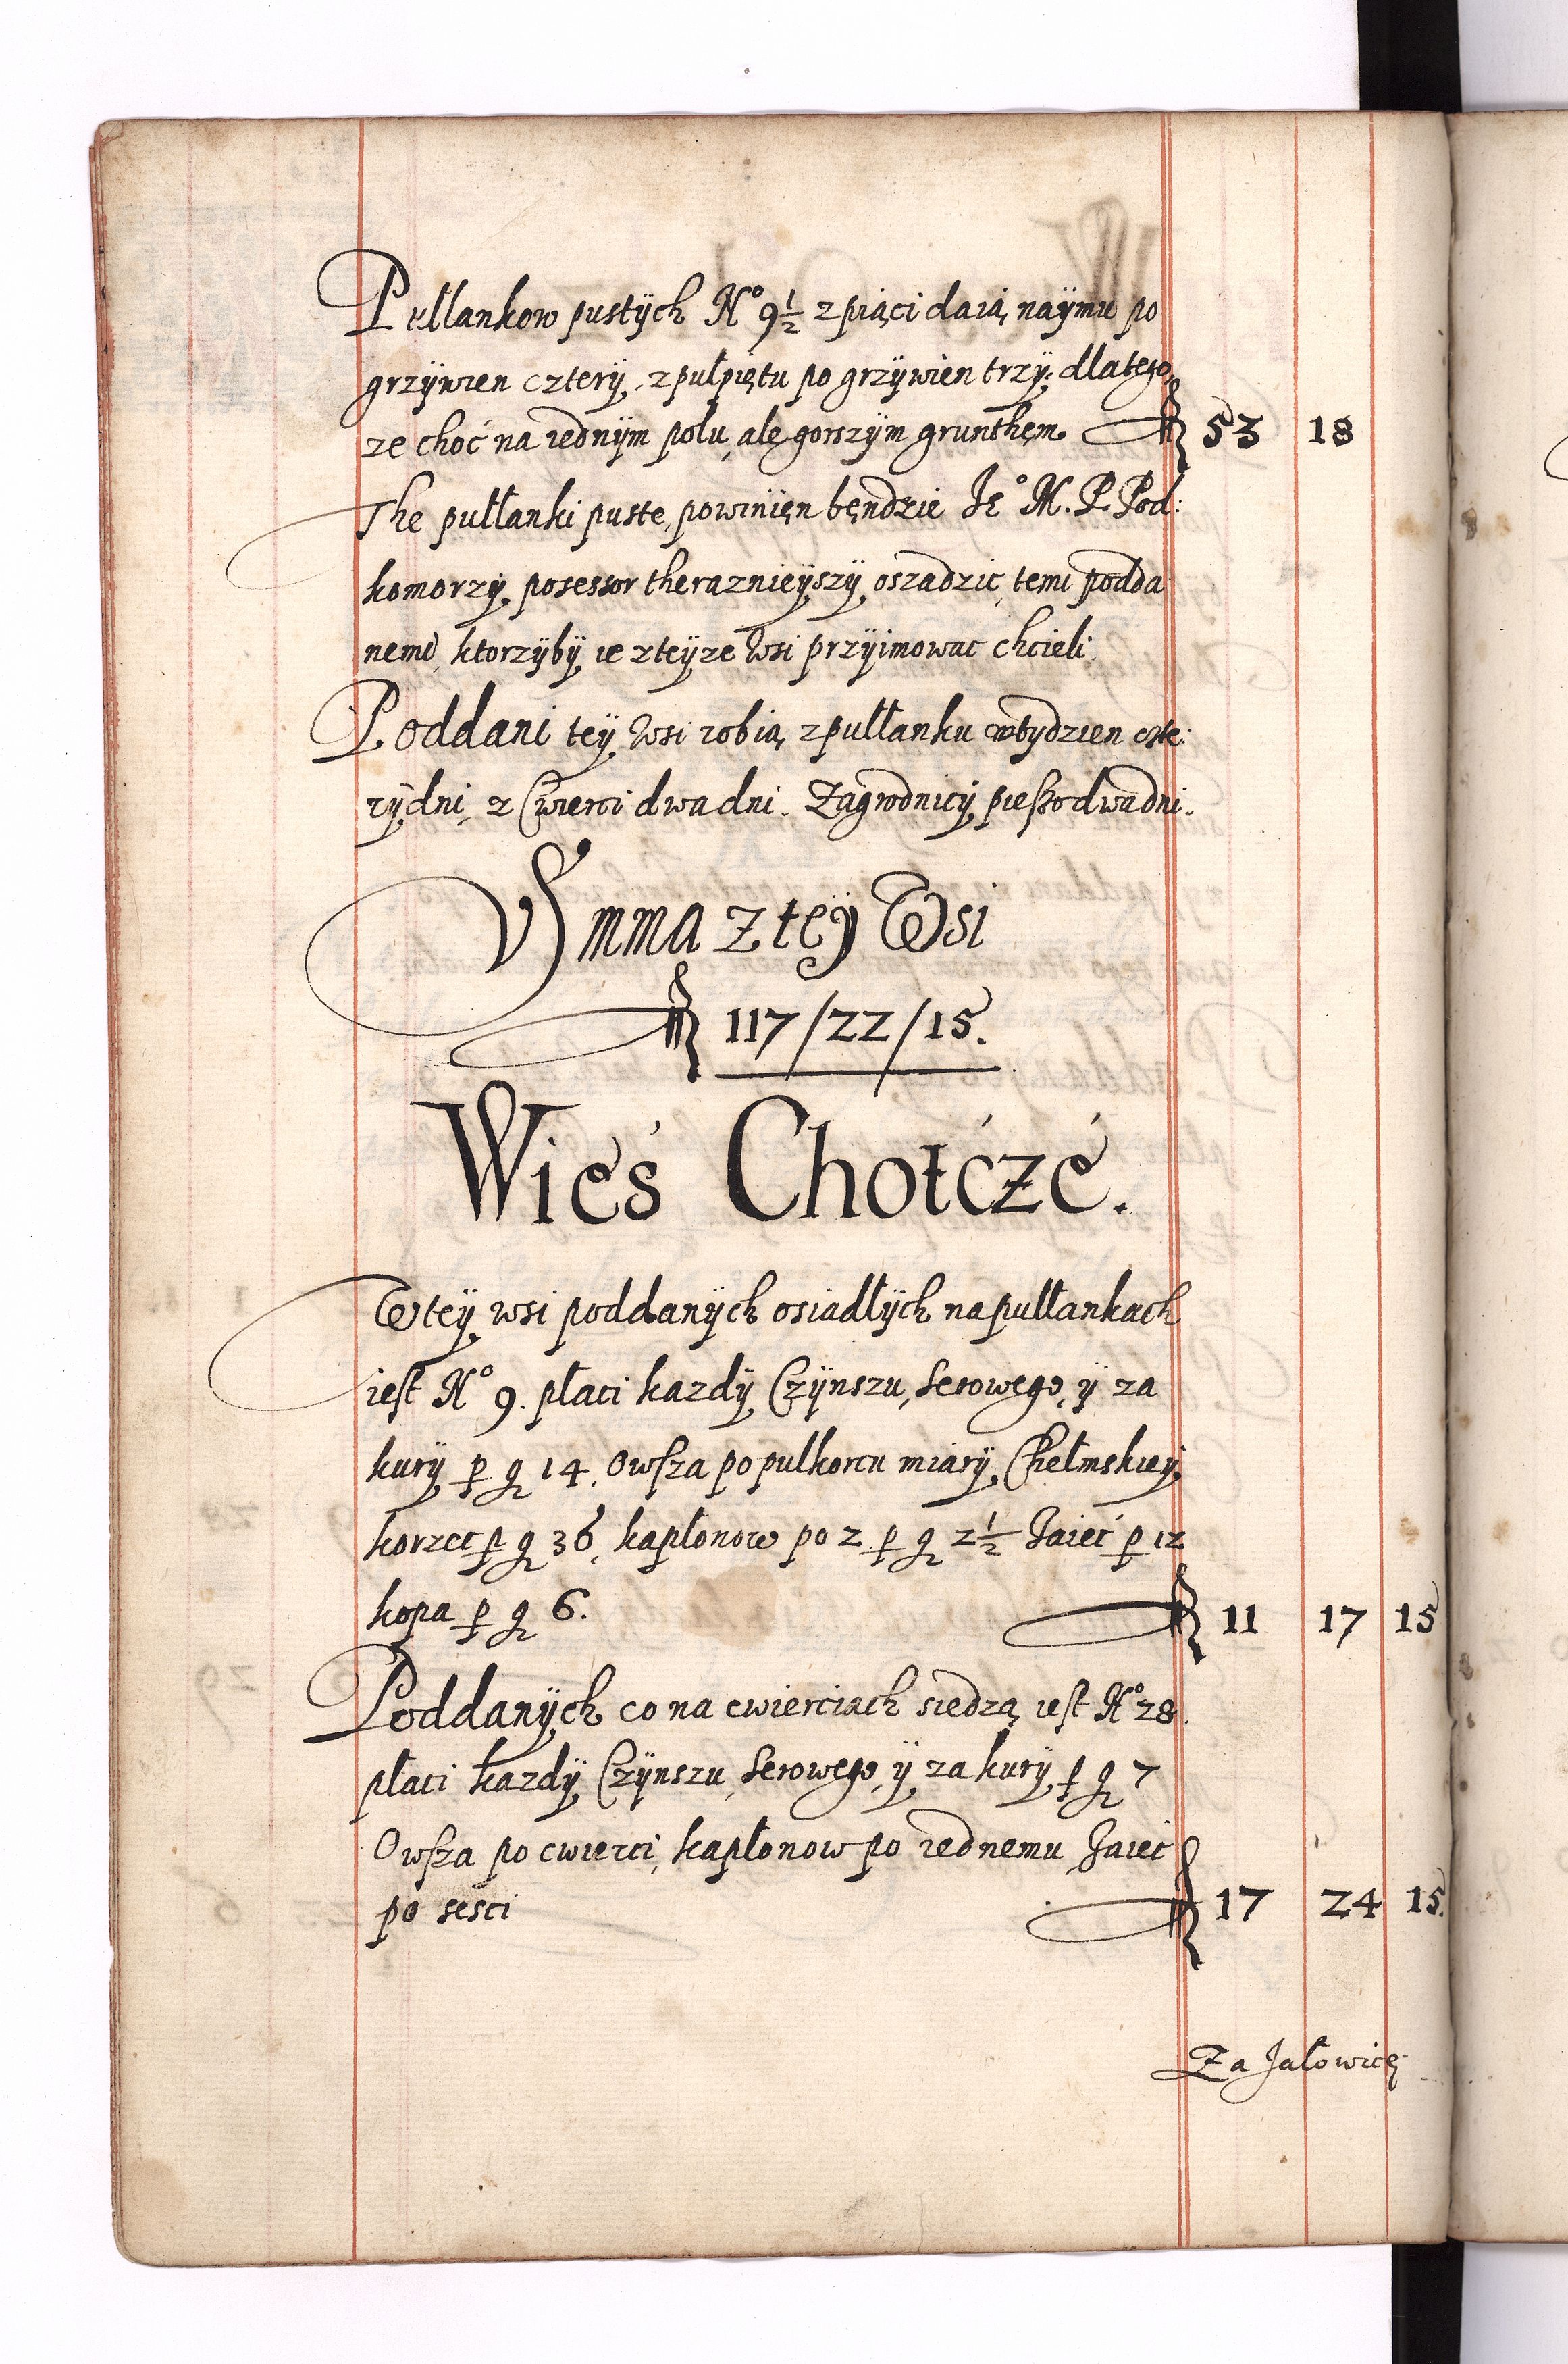 Pułlankow pustÿch No 9½ z piąci daią naÿmu po
grzÿwien czterÿ, z pułpiętu po grzÿwien trzÿ: dlatego,
ze choć na iednÿm polu, ale gorszÿm grunthem 53 18
The pułlanki puste, powinien bęndzie Je° M. P. Pod:
komorzÿ posessor theraznieÿszÿ oszadzic, temi podda
nemi, ktorzÿbÿ ie z teÿze Wsi przÿimowac chcieli.
Poddani teÿ Wsi robią z pułlanku w tydzien czte:
rÿ dni, z Cwierci dwa dni. Zagrodnicÿ pieszo dwa dni.
Summa z teÿ Wsi
117/22/15.
Wieś Chotcze.
W teÿ wsi poddanÿch osiadłÿch na pułlankach
iest No 9. płaci kazdÿ Czÿnszu, Serowego, ÿ za
kurÿ p g 14, Owsza po pulkorcu miarÿ Chełmskieÿ
korzec p g 36, kapłonow po 2 p g 2½ Jaieć p 12
kopa p g 6. 11 17 15
Poddanÿch co na cwierciach siedzą iest No 28.
płaci kazdÿ Czÿnszu, Serowego, ÿ za kurÿ p g 7
Owsza po cwierci, kapłonow po iednemu Jaiec
po sesci 17 24 15.
Za Jałowicę